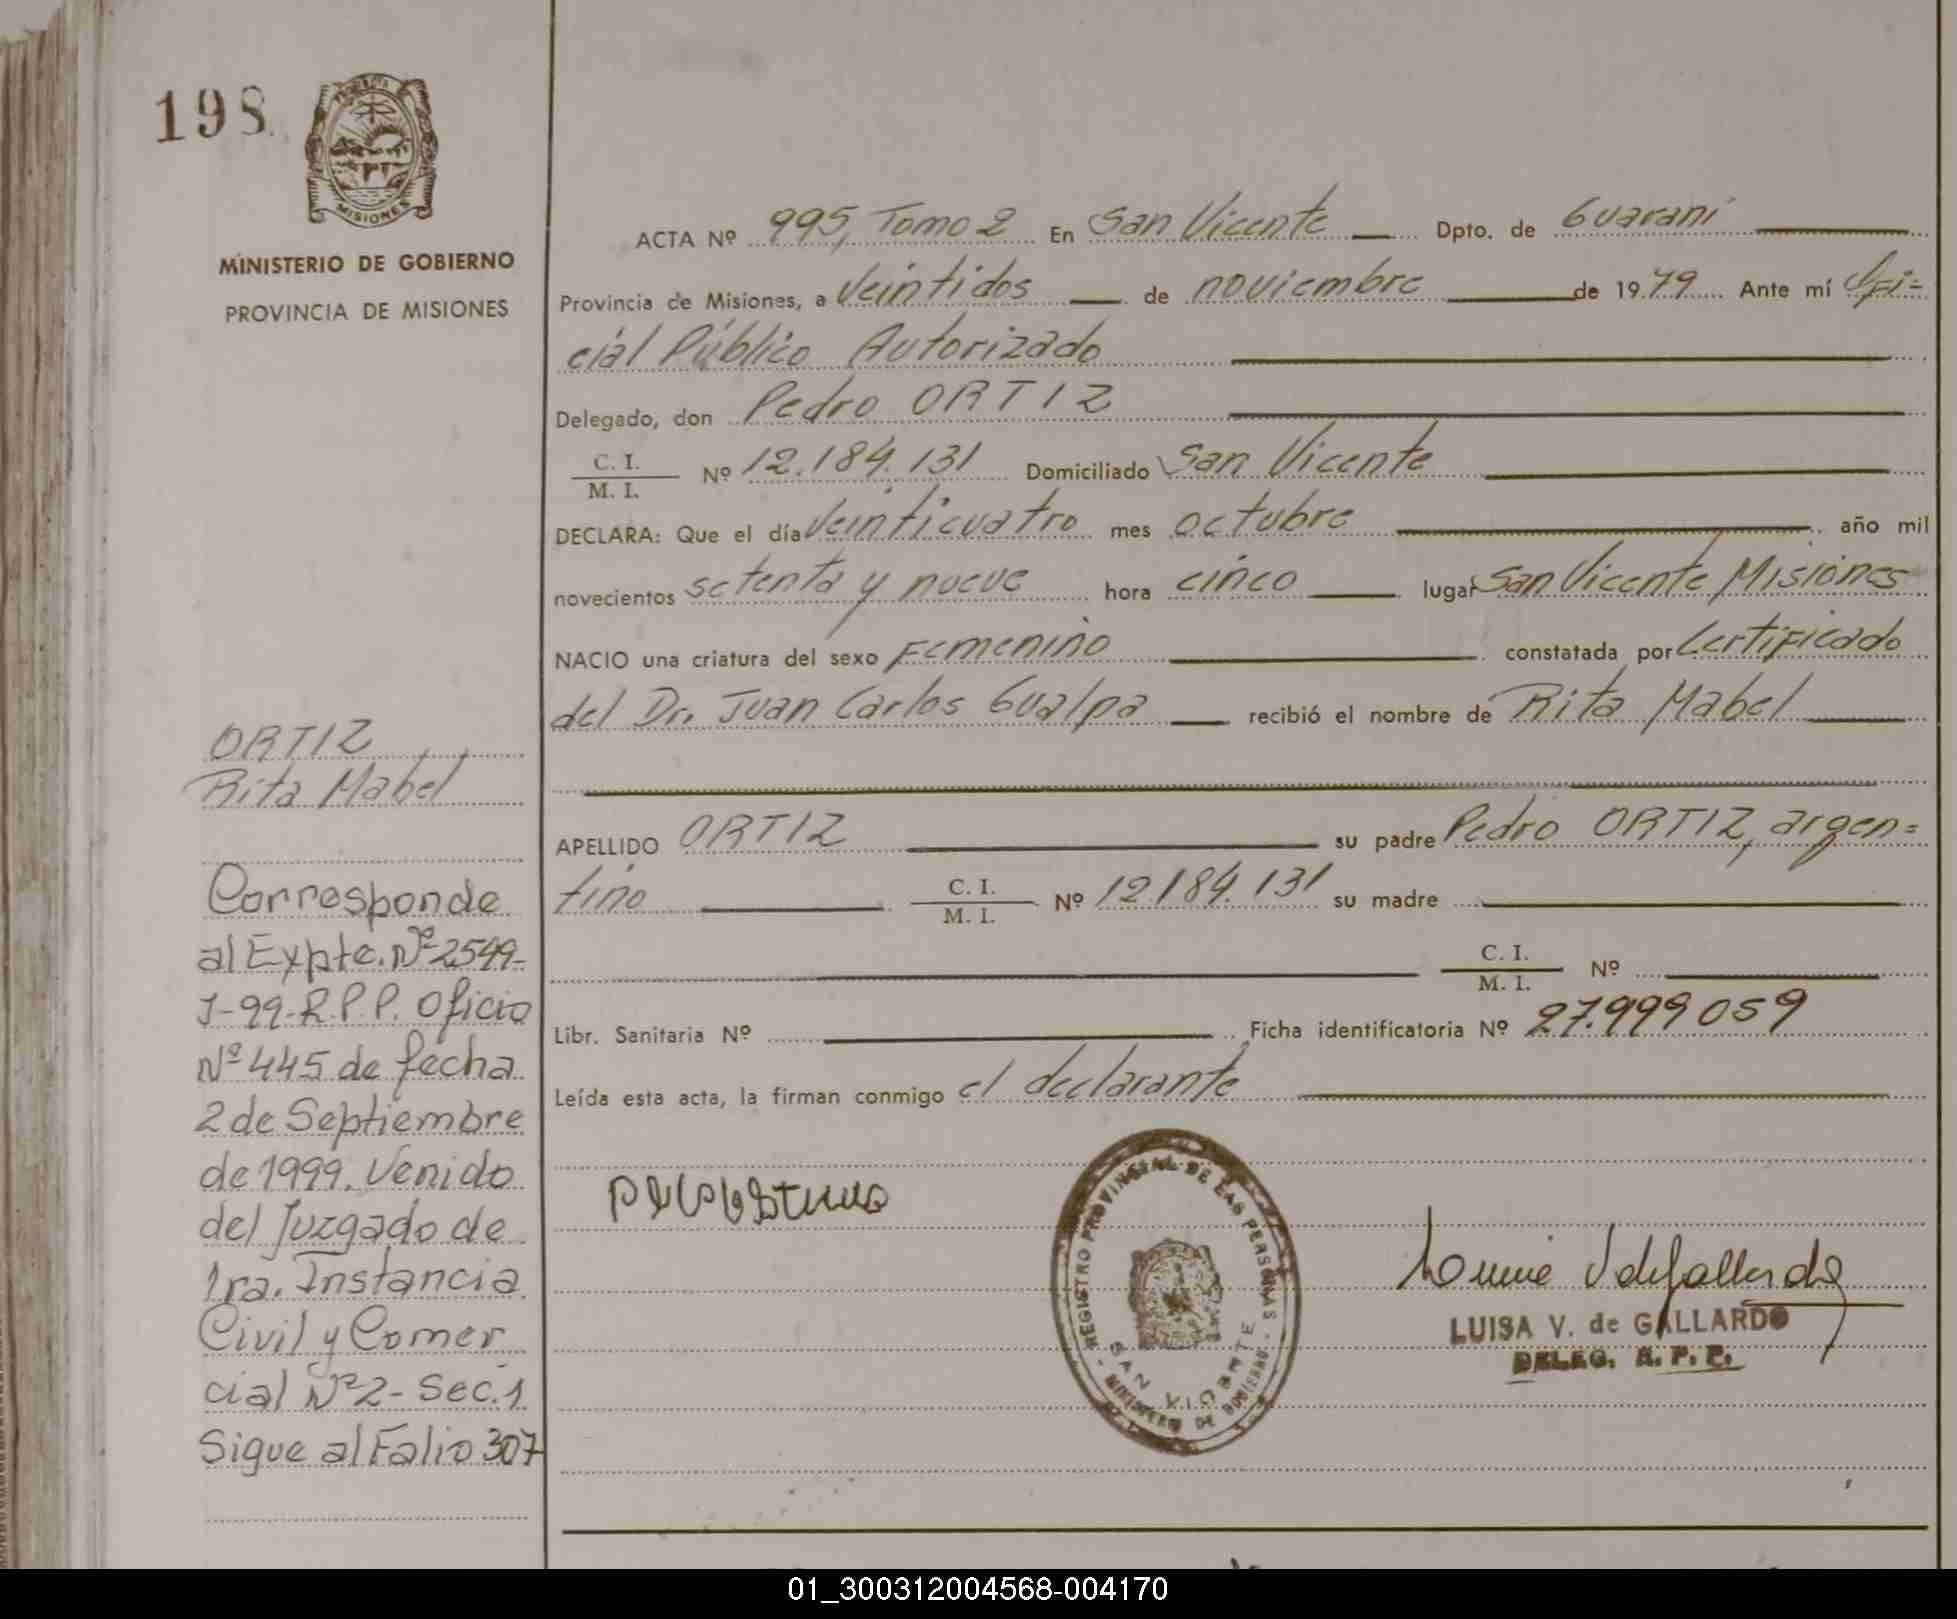 198
MISIONES
MINISTERIO DE GOBIERNO
PROVINCIA DE MISIONES
ORTIZ
Rita Mabel
Corresponde
al Expte. Nº 2549-
J-99-R.P.P. Oficio
Nº 445 de fecha
2 de Septiembre
de 1999. Venido
del Juzgado de
1ra. Instancia
Civil y Comer
cial Nº 2 - Sec. 1
Sigue al Falio 307
ACTA Nº 995, Tomo 2 En San Vicente Dpto. de Guaraní
Provincia de Misiones, a Veintidos de noviembre de 1979 Ante mí Ofi=
cial Público Autorizado
Delegado, don Pedro ORTIZ
C. I.
M. I. Nº 12.184.131 Domiciliado San Vicente
DECLARA: Que el día Veinticuatro mes octubre año mil
novecientos setenta y nueve hora cinco lugar San Vicente Misiones
NACIO una criatura del sexo Femenino constatada por Certificado
del Dr. Juan Carlos Gualpa recibió el nombre de Rita Mabel
APELLIDO ORTIZ su padre Pedro ORTIZ, argen=
tino C. I.
M. I. Nº 12.184.131 su madre
C. I.
M. I. Nº
Libr. Sanitaria Nº Ficha identificatoria Nº 27.999059
Leída esta acta, la firman conmigo el declarante
REGISTRO PROVINCIAL DE LAS PERSONAS
SAN VICENTE
MINISTERIO DE GOBIERNO
LUISA V. de GALLARDO
DELEG. R. P. P.
01_300312004568-004170